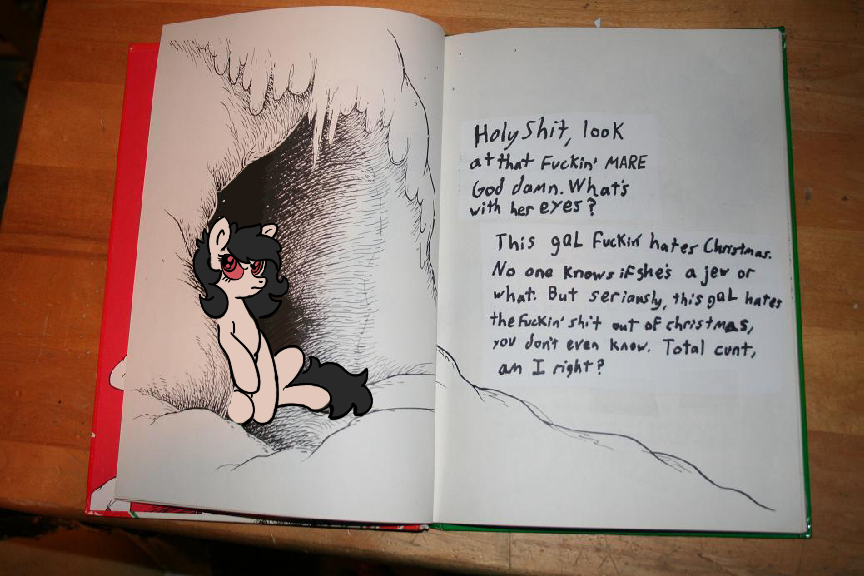 Holy Shit, look
at that Fuckin' MARE
God damn. What's
with her eyes?
This gal Fuckin' hates Christmas.
No one knows if she's a jew or
what. But seriously, this gal hates
the Fuckin' shit out of christmas,
you don't even know. Total cunt,
am I right?